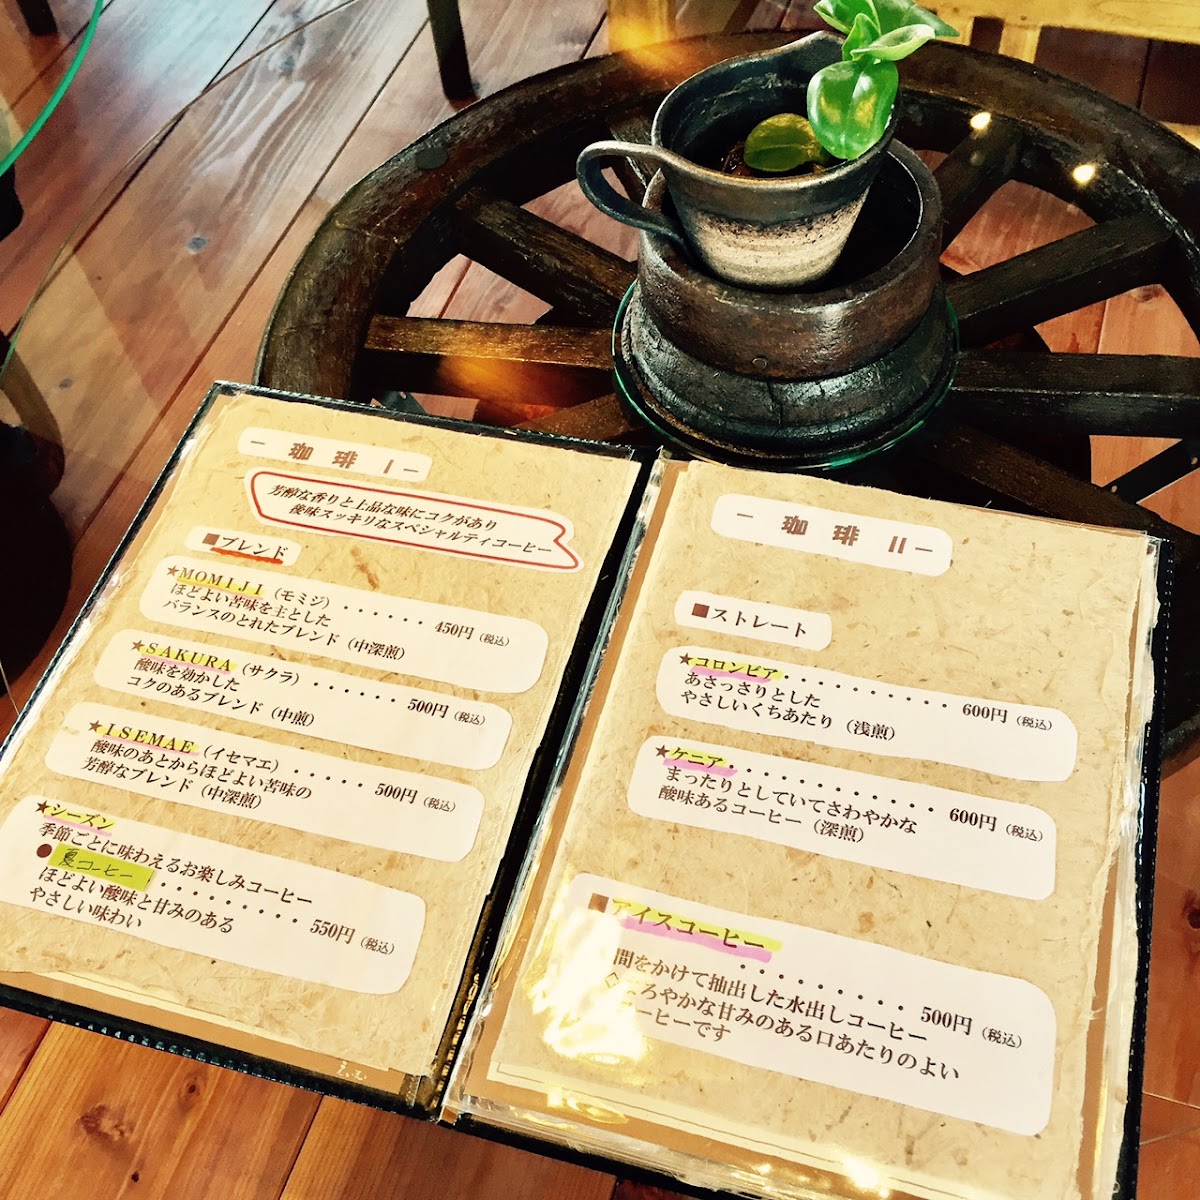 ー 珈 琲 Ⅰー
芳醇な香りと上品な味にコクがあり
後味スッキリなスペシャルティコーヒー
■ブレンド
★MOMIJI(モミジ)・・・・・・ 450円(税込)
ほどよい苦味を主とした
バランスのとれたブレンド(中深煎)
★SAKURA(サクラ)・・・・・・ 500円(税込)
酸味を効かした
コクのあるブレンド(中煎)
★ISEMAE(イセマエ)・・・・・・ 500円(税込)
酸味のあとからほどよい苦味の
芳醇なブレンド(中深煎)
★シーズン
季節ごとに味わえるお楽しみコーヒー
●夏コーヒー・・・・・・・・・・ 550円(税込)
ほどよい酸味と甘みのある
やさしい味わい
ー 珈 琲 Ⅱー
■ストレート
★コロンビア・・・・・・・・・・ 600円(税込)
あさっさりとした
やさしいくちあたり(浅煎)
★ケニア・・・・・・・・・・・・ 600円(税込)
まったりとしていてさわやかな
酸味あるコーヒー(深煎)
■アイスコーヒー
・・・・・・・・・ 500円(税込)
間をかけて抽出した水出しコーヒー
ろやかな甘みのある口あたりのよい
ーヒーです